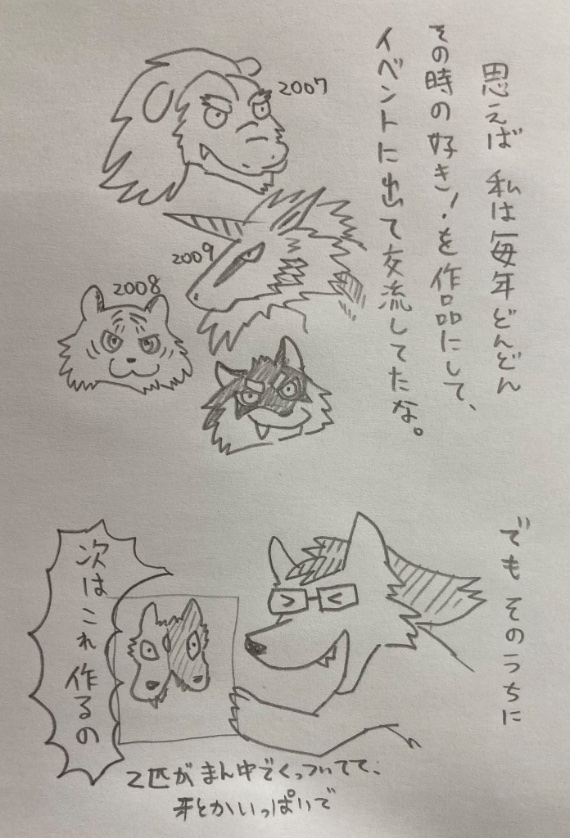 思えば 私は毎年どんどん
その時の好き!を作品にして、
イベントに出て交流してたな。
2007
2009
2008
でも そのうちに
次はこれ 作るの
2匹がまん中でくっついてて、
牙とかいっぱいで